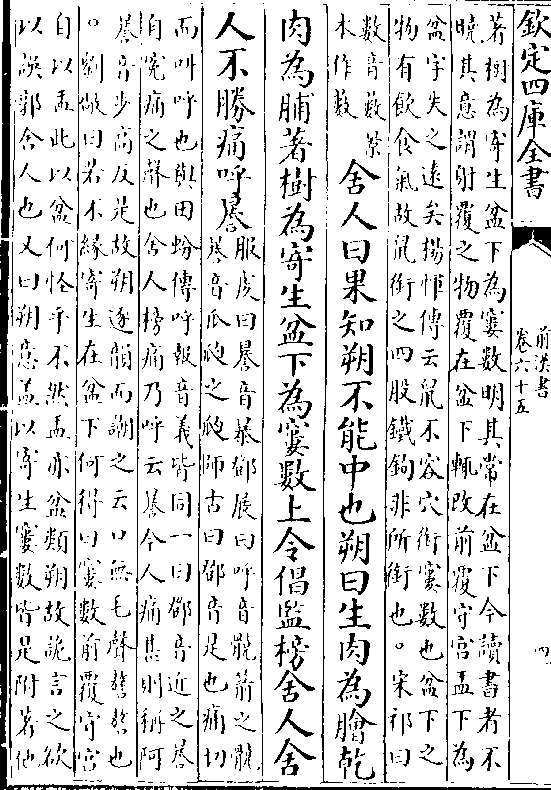 欽定四庫全書
前漢書
卷六十五
四
著樹為寄生盆下為寠數明其常在盆下今讀書者不
曉其意謂射覆之物覆在盆下輒改前覆守宮盂下為
盆字失之遠矣楊惲傳云鼠不容穴銜寠數也盆下之
物有飲食氣故鼠銜之四股鐵鉤非所銜也。宋祁曰
數音數景
本作數
舍人曰果知朔不能中也朔曰生肉為膾乾
肉為脯著樹為寄生盆下為寠數上令倡監榜舍人舍
人不勝痛呼謈
服虔曰謈音暴鄧展曰呼音髐箭之髐
謈音瓜瓝之瓝師古曰鄧音是也痛切
而叫呼也與田蚡傳呼報音義皆同一曰鄧音近之謈
自冤痛之聲也舍人榜痛乃呼云謈今人痛甚則稱阿
謈音步高反是故朔逐韻而謿之云口無毛聲謷謷也
。劉攽曰若不緣寄生在盆下何得曰寠數前覆守宮
自以盂此以盆何怪乎不然盂亦盆類朔故詭言之欲
以誤郭舍人也又曰朔意蓋以寄生寠數皆是附著他